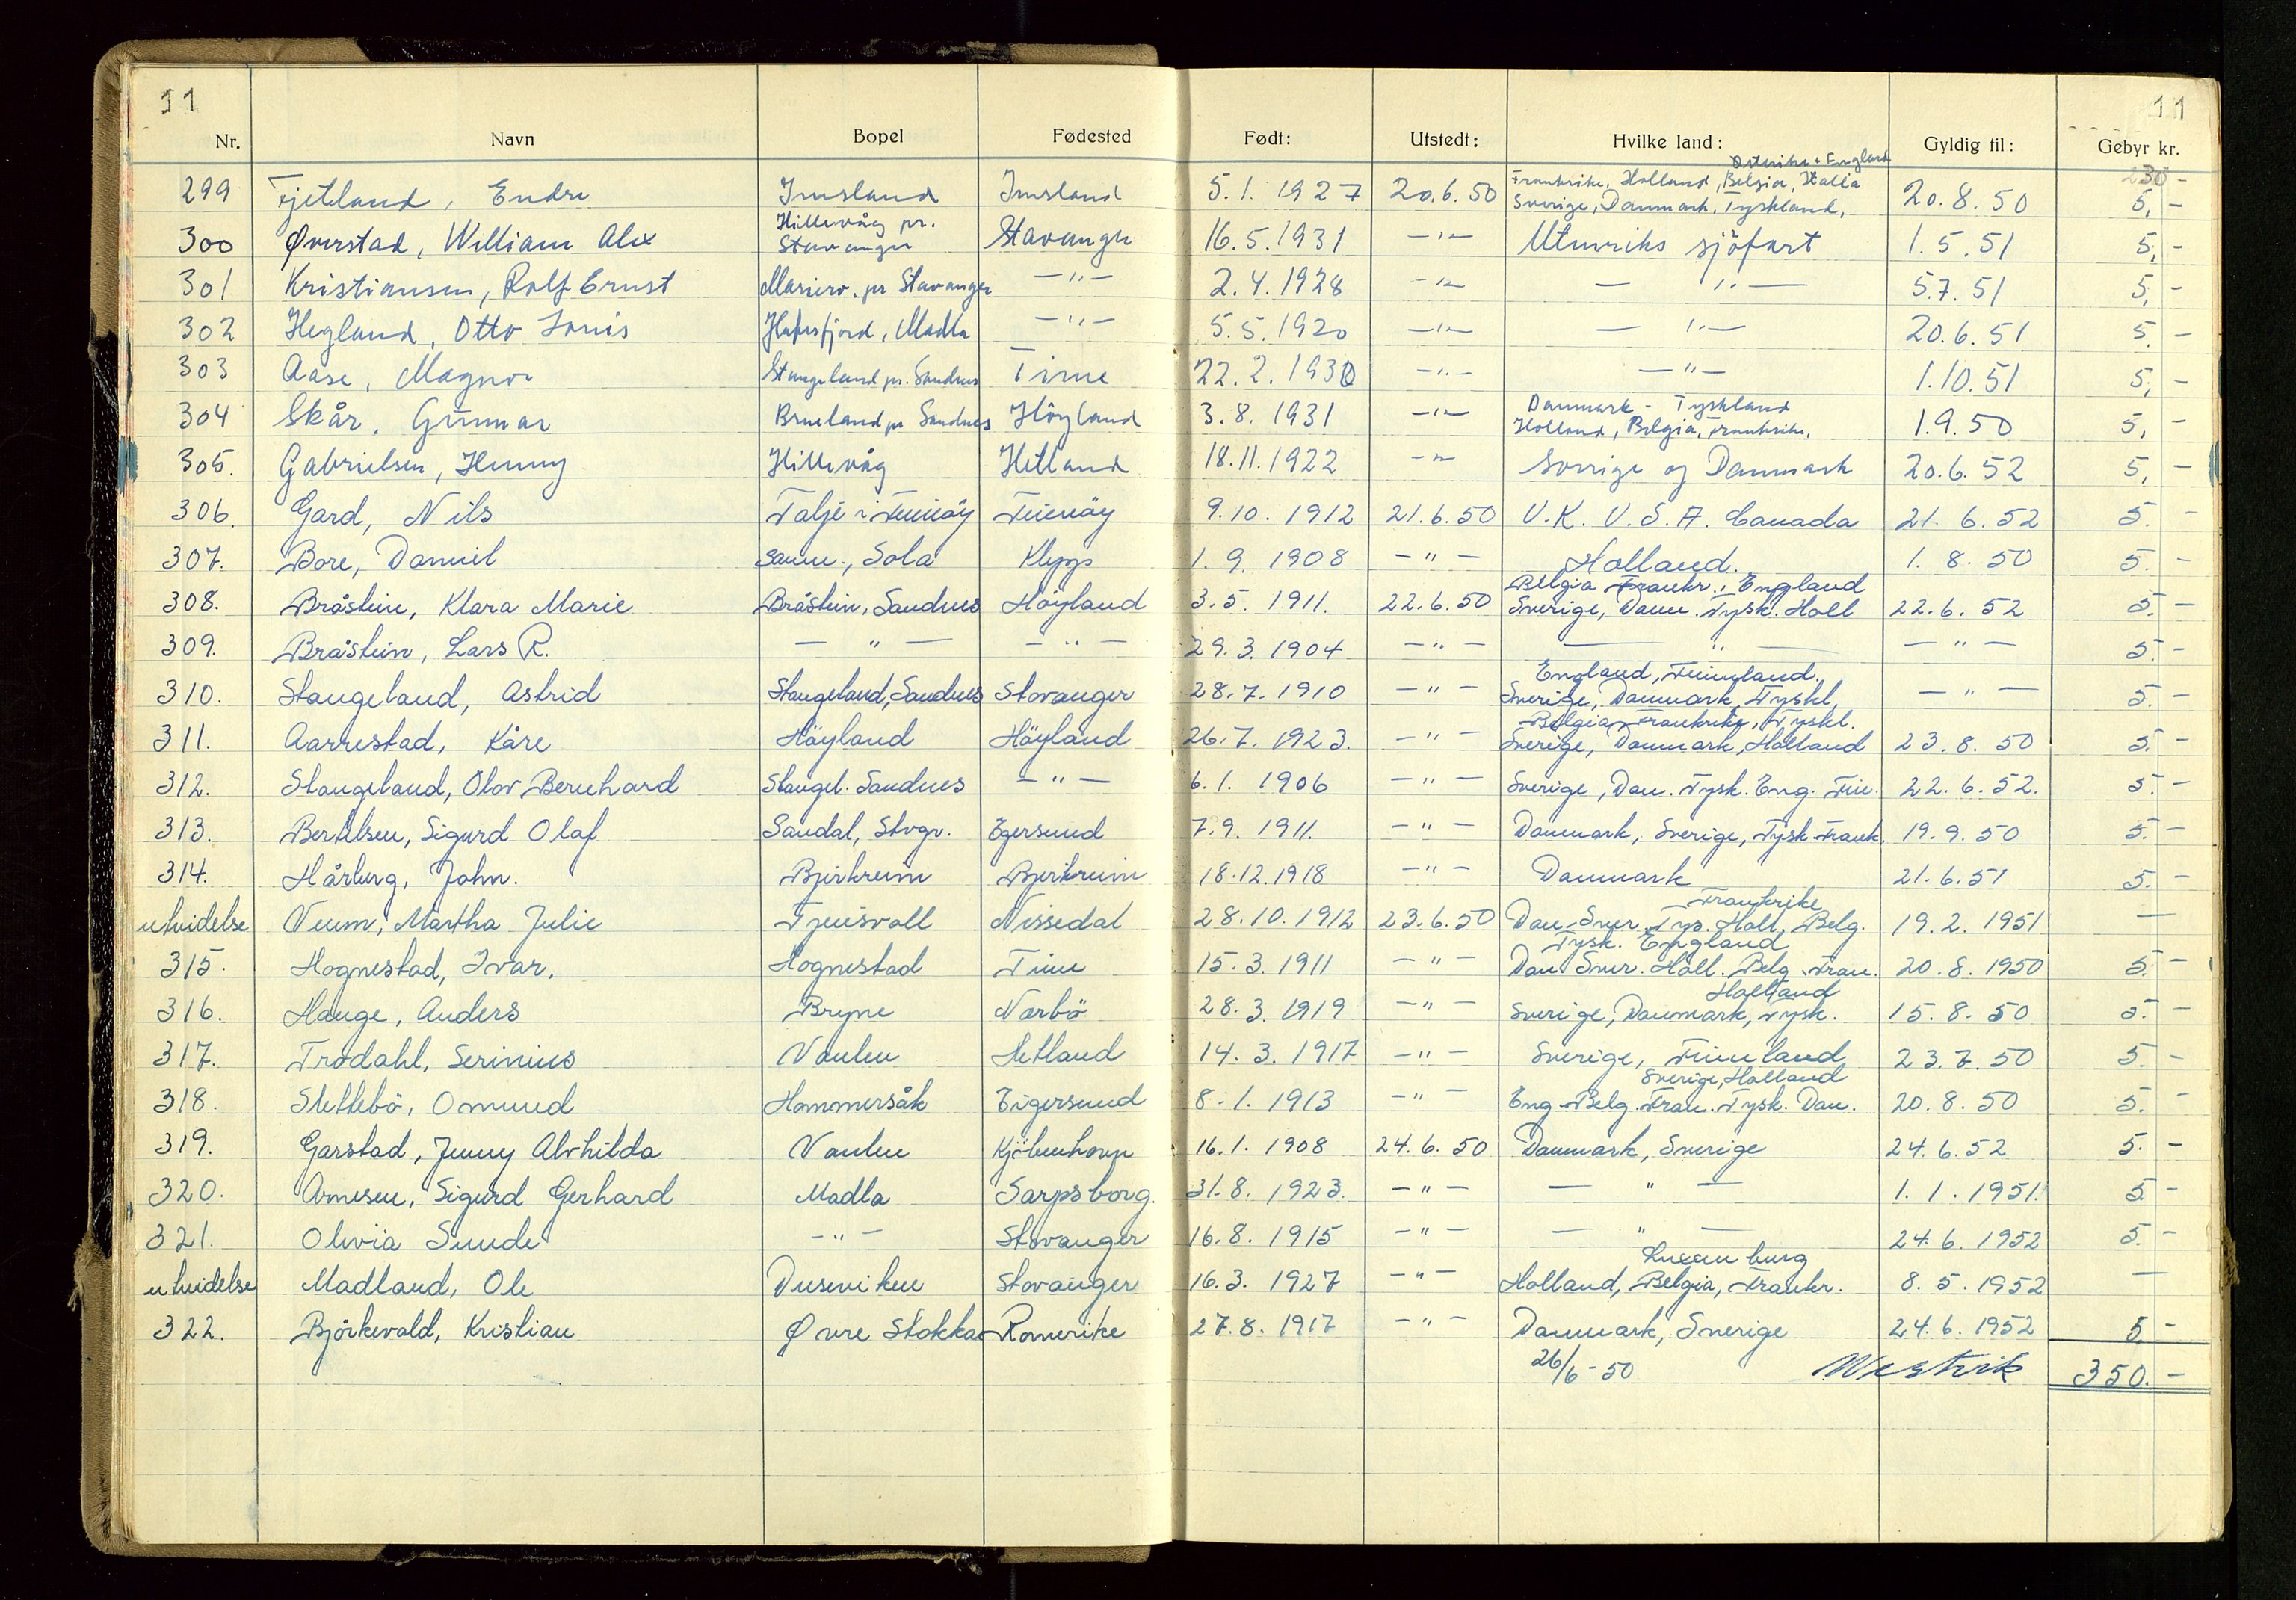 11 11
Nr. Navn Bopel Fødested Født: Utstedt: Hvilke land: Gyldig til: Gebyr kr.
Østerike + England 230 -
299 Fjetland, Endre Imsland Imsland 5.1.1927 20.6.50 Frankrike, Holland, Belgia, Italia 20.8.50 5,-
Sverige, Danmark, Tyskland,
300 Øverstad, William Alex Hillevåg pr. Stavanger Stavanger 16.5.1931 -"- Utenriks sjöfart 1.5.51 5,-
301 Kristiansen, Rolf Ernst Mariero. pr Stavanger -"- 2.4.1928 -"- -"- 5.7.51 5,-
302 Hegland, Otto Louis Hafrsfjord, Madla -"- 5.5.1920 -"- -"- 20.6.51 5,-
303 Aase, Magnor Stangeland pr. Sandnes Time 22.2.1930 -"- -"- 1.10.51 5,-
304 Skår, Gunnar Brueland pr Sandnes Höyland 3.8.1931 -"- Danmark - Tyskland 1.9.50 5,-
Holland, Belgia, Frankrike,
305. Gabrielsen, Henny Hillevåg Hetland 18.11.1922 -"- Sverige og Danmark 20.6.52 5,-
306. Gard, Nils Talje i Finnöy Finnöy 9.10.1912 21.6.50 U.K. U.S.A. Canada 21.6.52 5.-
307. Bore, Daniel Sola Klepp 1.9.1908 -"- Holland. 1.8.50 5.-
Belgia Frankr., England
308. Bråstein, Klara Marie Bråstein, Sandnes Höyland 3.5.1911. 22.6.50 Sverige, Danm. Tysk. Holl 22.6.52 5.-
309. Bråstein, Lars R. -"- -"- 29.3.1904 -"- -"- -"- 5.-
England, Finnland.
310. Stangeland, Astrid Stangeland, Sandnes Stavanger 28.7.1910 -"- Sverige, Danmark, Tyskl, -"- 5.-
Belgia, Frankrike, Tyskl.
311. Aarrestad, Kåre Höyland Höyland 26.7.1923. -"- Sverige, Danmark, Holland 23.8.50 5.-
312. Stangeland, Olav Bernhard Stangel. Sandnes -"- 6.1.1906 -"- Sverige, Dan. Tysk. Eng. Fin. 22.6.52. 5.-
313. Bertelsen, Sigurd Olaf Sandal, Stvgr. Egersund 7.9.1911. -"- Danmark, Sverige, Tysk. Frank. 19.9.50 5.-
314. Hårberg, John. Bjerkreim Bjerkreim 18.12.1918 -"- Danmark 21.6.51 5.-
Frankrike
utvidelse Veum, Martha Julie Tjensvoll Nissedal 28.10.1912 23.6.50 Dan. Sver. Tys. Holl, Belg. 19.2.1951 -
Tysk. England
315. Hognestad, Ivar. Hognestad Time 15.3.1911 -"- Dan. Sver. Holl. Belg. Fran. 20.8.1950 5.-
Holland
316. Hauge, Anders Bryne Nærbö 28.3.1919 -"- Sverige, Danmark, Tysk. 15.8.50 5.-
317. Trodahl, Serinius Vaulen Hetland 14.3.1917 -"- Sverige, Finnland 23.7.50 5.-
Sverige, Holland
318. Slettebö, Omund Hommersåk Eigersund 8.1.1913 -"- Eng. Belg. Fran. Tysk. Dan. 20.8.50 5.-
319. Garstad, Jenny Alvhilda Vaulen Kjöbenhavn 16.1.1908 24.6.50 Danmark, Sverige 24.6.52 5.-
320. Arnesen, Sigurd Gerhard Madla Sarpsborg. 31.8.1923. -"- -"- 1.1.1951. 5.-
321. Olivia Sunde -"- Stavanger 16.8.1915 -"- -"- 24.6.1952 5.-
Luxemburg
utvidelse Madland, Ole Duseviken Stavanger 16.3.1927 -"- Holland, Belgia, Frankr. 8.5.1952 -
322. Björkevald, Kristian Øvre Stokka Romerike 27.8.1917 -"- Danmark, Sverige 24.6.1952 5,-
26/6-50 Westvik 350.-